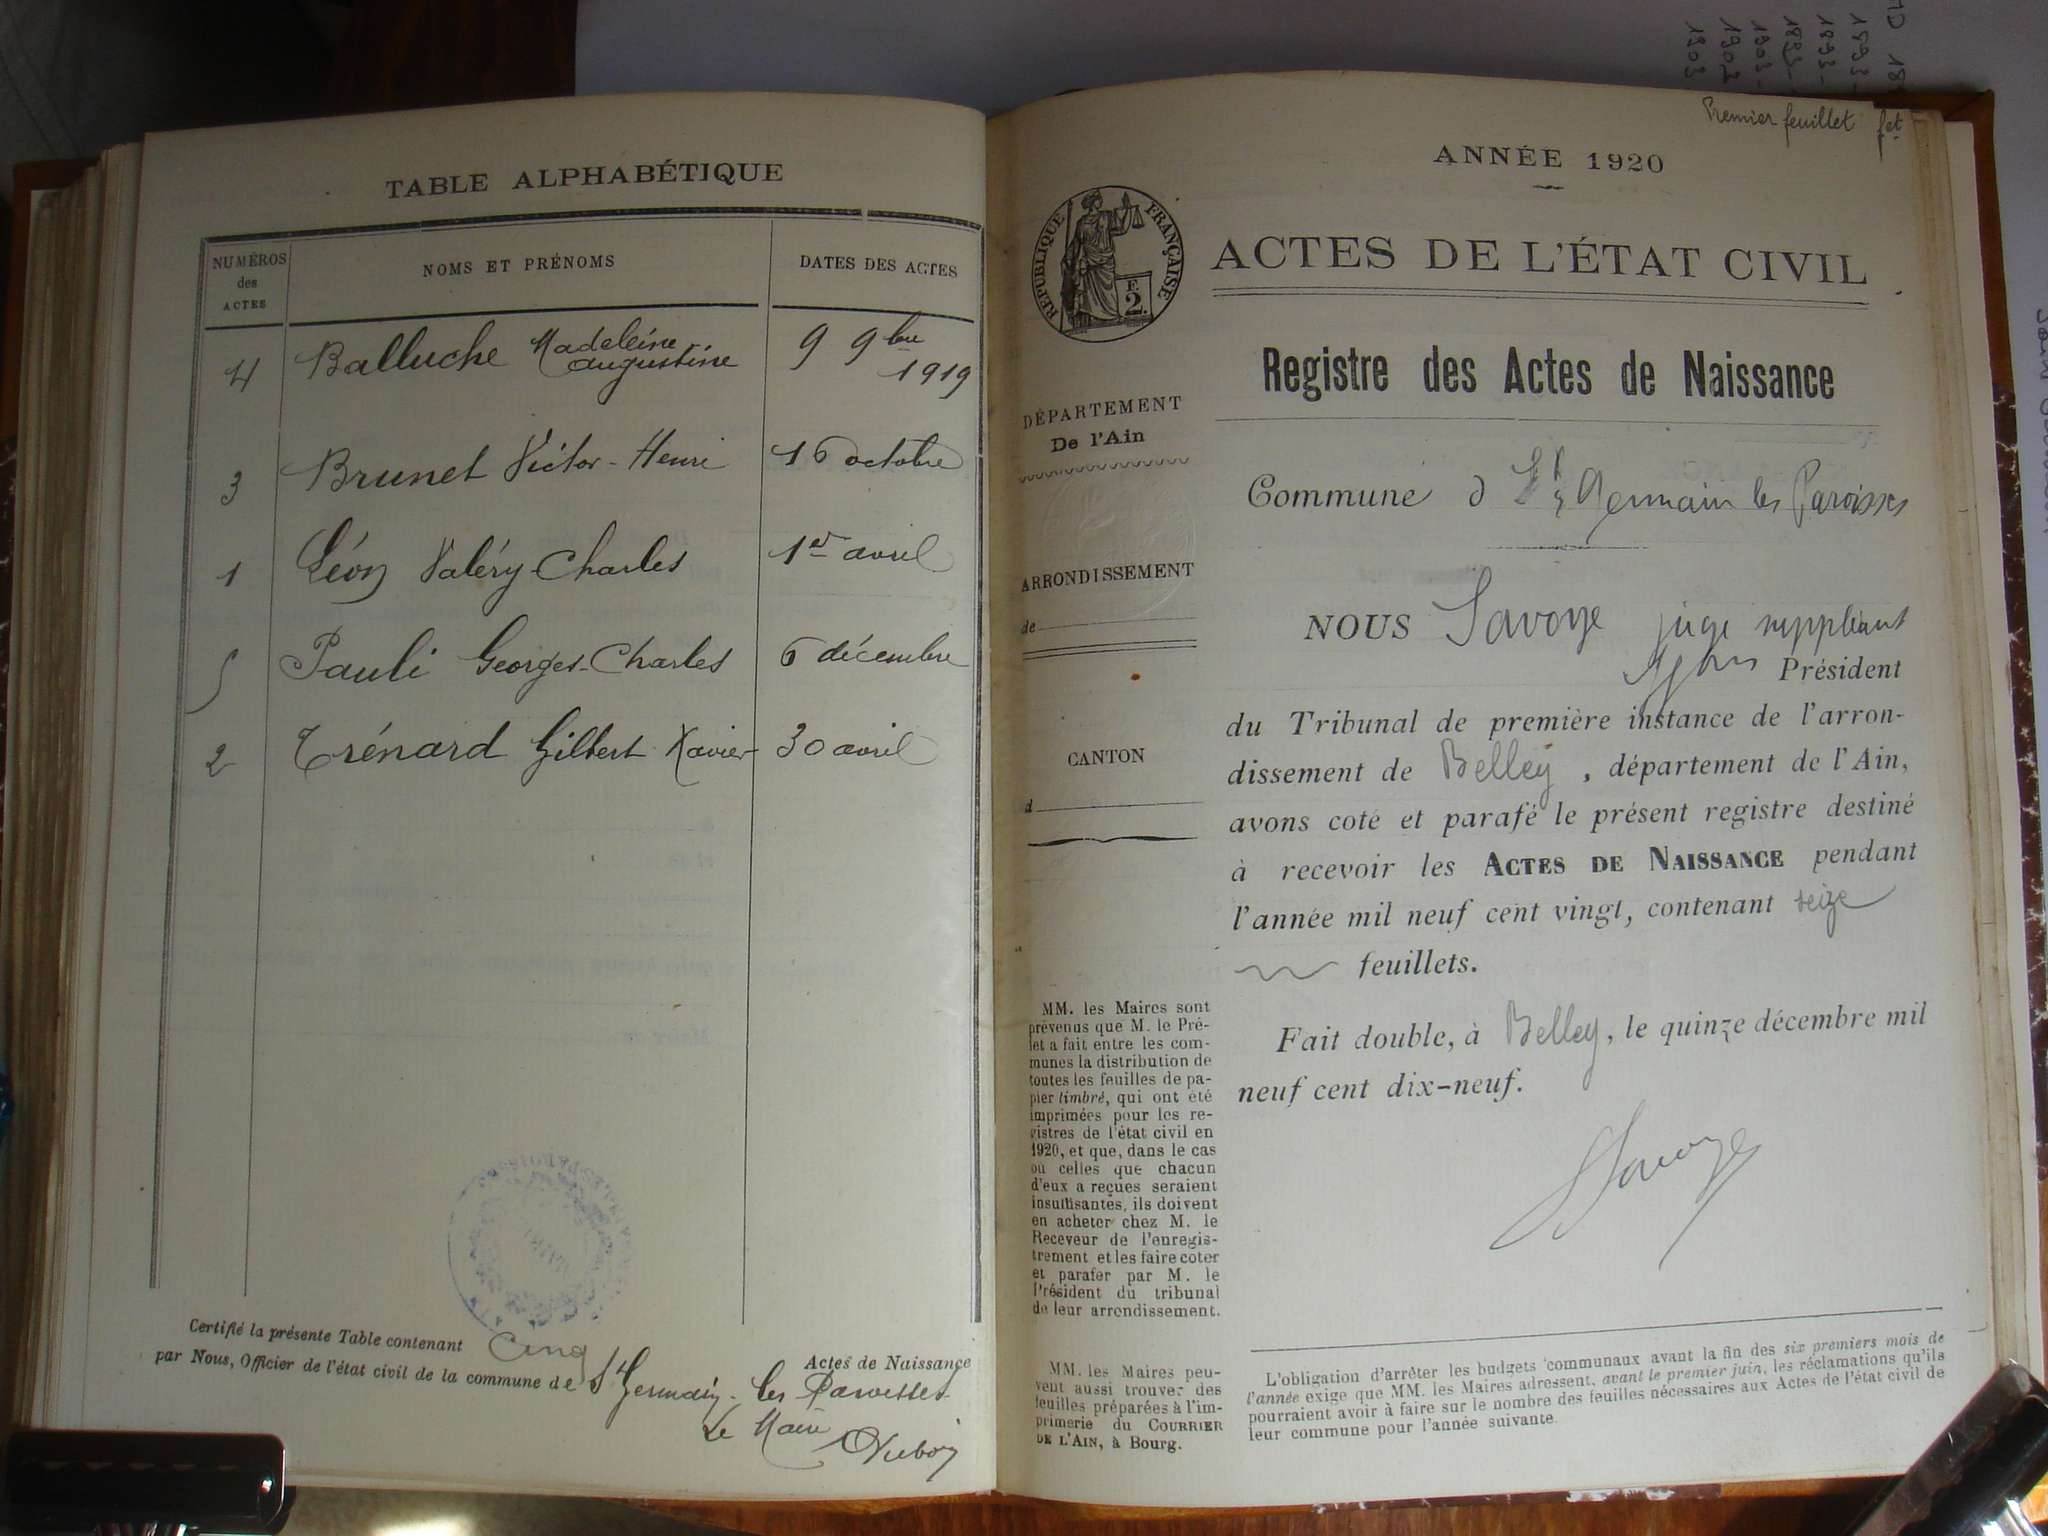 TABLE ALPHABÉTIQUE
NUMÉROS des ACTES NOMS ET PRÉNOMS DATES DES ACTES
4 Balluche Madeleine augustine 9 9bre 1919
3 Brunet Victor-Henri 16 octobre
1 Léon Valéry-Charles 1er avril
5 Pauli Georges-Charles 6 décembre
2 Trénard Gilbert Xavier 30 avril
Certifié la présente Table contenant Cinq Actes de Naissance
par Nous, Officier de l'état civil de la commune de St Germain-les Paroisses
Le Maire
Dubois
Premier feuillet
ANNÉE 1920
RÉPUBLIQUE FRANÇAISE
2.
ACTES DE L'ÉTAT CIVIL
Registre des Actes de Naissance
DÉPARTEMENT
De l'Ain
ARRONDISSEMENT
de
CANTON
d
Commune d St Germain les Paroisses
NOUS Savoye juge suppléant
Président
du Tribunal de première instance de l'arron-
dissement de Belley, département de l'Ain,
avons coté et parafé le présent registre destiné
à recevoir les ACTES DE NAISSANCE pendant
l'année mil neuf cent vingt, contenant seize
feuillets.
Fait double, à Belley, le quinze décembre mil
neuf cent dix-neuf.
Savoye
MM. les Maires sont
prévenus que M. le Pré-
fet a fait entre les com-
munes la distribution de
toutes les feuilles de pa-
pier timbré, qui ont été
imprimées pour les re-
gistres de l'état civil en
1920, et que, dans le cas
où celles que chacun
d'eux a reçues seraient
insuffisantes, ils doivent
en acheter chez M. le
Receveur de l'enregis-
trement et les faire coter
et parafer par M. le
Président du tribunal
de leur arrondissement.
MM. les Maires peu-
vent aussi trouver des
feuilles préparées à l'im-
primerie du COURRIER
DE L'AIN, à Bourg.
L'obligation d'arrêter les budgets communaux avant la fin des six premiers mois de
l'année exige que MM. les Maires adressent, avant le premier juin, les réclamations qu'ils
pourraient avoir à faire sur le nombre des feuilles nécessaires aux Actes de l'état civil de
leur commune pour l'année suivante.
1893
1893
1893
1903
1902
1903